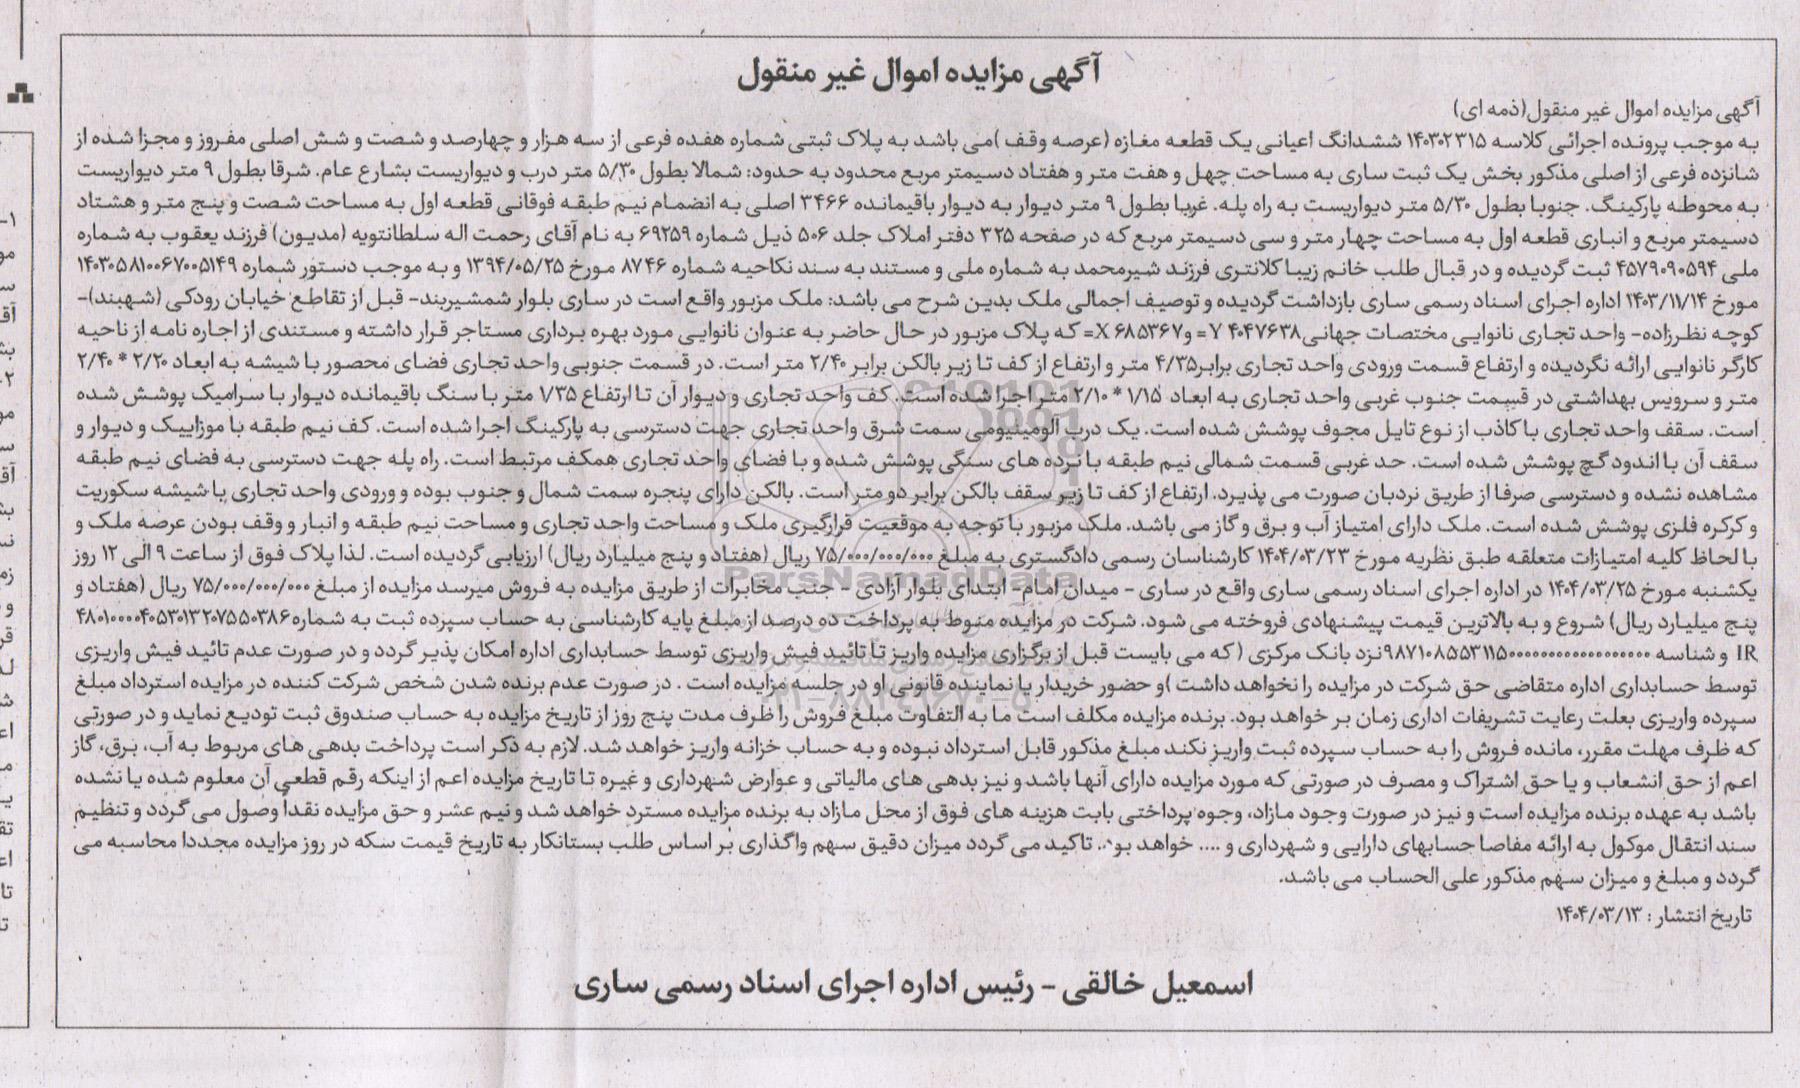 آگهی مزایده اموال غیر منقول
آگهی مزایده اموال غیر منقول(ذمه ای)
به موجب پرونده اجرائی کلاسه ۱۴۰۳۰۲۳۱۵ ششدانگ اعیانی یک قطعه مغازه (عرصه وقف )می باشد به پلاک ثبتی شماره هفده فرعی از سه هزار و چهارصد و شصت و شش اصلی مفروز و مجزا شده از
شانزده فرعی از اصلی مذکور بخش یک ثبت ساری به مساحت چهل و هفت متر و هفتاد دسیمتر مربع محدود به حدود: شمالا بطول ۵/۳۰ متر درب و دیواریست بشارع عام. شرقا بطول ۹ متر دیواریست
به محوطه پارکینگ. جنوبا بطول ۵/۳۰ متر دیواریست به راه پله. غربا بطول ۹ متر دیوار به دیوار باقیمانده ۳۴۶۶ اصلی به انضمام نیم طبقه فوقانی قطعه اول به مساحت شصت و پنج متر و هشتاد
دسیمتر مربع و انباری قطعه اول به مساحت چهار متر و سی دسیمتر مربع که در صفحه ۳۲۵ دفتر املاک جلد ۵۰۶ ذیل شماره ۶۹۲۵۹ به نام آقای رحمت اله سلطانتویه (مدیون) فرزند یعقوب به شماره
ملی ۴۵۷۹۰۹۰۵۹۴ ثبت گردیده و در قبال طلب خانم زیبا کلانتری فرزند شیرمحمد به شماره ملی و مستند به سند نکاحیه شماره ۸۷۴۶ مورخ ۱۳۹۴/۰۵/۲۵ و به موجب دستور شماره ۱۴۰۳۰۵۸۱۰۰۶۷۰۰۵۱۴۹
مورخ ۱۴۰۳/۱۱/۱۴ اداره اجرای اسناد رسمی ساری بازداشت گردیده و توصیف اجمالی ملک بدین شرح می باشد: ملک مزبور واقع است در ساری بلوار شمشیربند- قبل از تقاطع خیابان رودکی (شهبند)-
کوچه نظرزاده- واحد تجاری نانوایی مختصات جهانی۴۰۴۷۶۳۸ Y= و۶۸۵۳۶۷ X= که پلاک مزبور در حال حاضر به عنوان نانوایی مورد بهره برداری مستاجر قرار داشته و مستندی از اجاره نامه از ناحیه
کارگر نانوایی ارائه نگردیده و ارتفاع قسمت ورودی واحد تجاری برابر۴/۳۵ متر و ارتفاع از کف تا زیر بالکن برابر ۲/۴۰ متر است. در قسمت جنوبی واحد تجاری فضای محصور با شیشه به ابعاد ۲/۲۰ * ۲/۴۰
متر و سرویس بهداشتی در قسمت جنوب غربی واحد تجاری به ابعاد ۱/۱۵ * ۲/۱۰ متر اجرا شده است. کف واحد تجاری و دیوار آن تا ارتفاع ۱/۳۵ متر با سنگ باقیمانده دیوار با سرامیک پوشش شده
است. سقف واحد تجاری با کاذب از نوع تایل مجوف پوشش شده است. یک درب آلومینیومی سمت شرق واحد تجاری جهت دسترسی به پارکینگ اجرا شده است. کف نیم طبقه با موزاییک و دیوار و
سقف آن با اندود گچ پوشش شده است. حد غربی قسمت شمالی نیم طبقه با نرده های سنگی پوشش شده و با فضای واحد تجاری همکف مرتبط است. راه پله جهت دسترسی به فضای نیم طبقه
مشاهده نشده و دسترسی صرفا از طریق نردبان صورت می پذیرد. ارتفاع از کف تا زیر سقف بالکن برابر دو متر است. بالکن دارای پنجره سمت شمال و جنوب بوده و ورودی واحد تجاری با شیشه سکوریت
و کرکره فلزی پوشش شده است. ملک دارای امتیاز آب و برق و گاز می باشد. ملک مزبور با توجه به موقعیت قرارگیری ملک و مساحت واحد تجاری و مساحت نیم طبقه و انبار و وقف بودن عرصه ملک و
با لحاظ کلیه امتیازات متعلقه طبق نظریه مورخ ۱۴۰۴/۰۳/۲۳ کارشناسان رسمی دادگستری به مبلغ ۷۵/۰۰۰/۰۰۰/۰۰۰ ریال (هفتاد و پنج میلیارد ریال) ارزیابی گردیده است. لذا پلاک فوق از ساعت ۹ الی ۱۲ روز
یکشنبه مورخ ۱۴۰۴/۰۳/۲۵ در اداره اجرای اسناد رسمی ساری واقع در ساری - میدان امام- ابتدای بلوار آزادی - جنب مخابرات از طریق مزایده به فروش میرسد مزایده از مبلغ ۷۵/۰۰۰/۰۰۰/۰۰۰ ریال (هفتاد و
پنج میلیارد ریال) شروع و به بالاترین قیمت پیشنهادی فروخته می شود. شرکت در مزایده منوط به پرداخت ده درصد از مبلغ پایه کارشناسی به حساب سپرده ثبت به شماره
IR و شناسه نزد بانک مرکزی ( که می بایست قبل از برگزاری مزایده واریز تا تائید فیش واریزی توسط حسابداری اداره امکان پذیر گردد و در صورت عدم تائید فیش واریزی
توسط حسابداری اداره متقاضی حق شرکت در مزایده را نخواهد داشت )و حضور خریدار یا نماینده قانونی او در جلسه مزایده است . در صورت عدم برنده شدن شخص شرکت کننده در مزایده استرداد مبلغ
سپرده واریزی بعلت رعایت تشریفات اداری زمان بر خواهد بود. برنده مزایده مکلف است ما به التفاوت مبلغ فروش را ظرف مدت پنج روز از تاریخ مزایده به حساب صندوق ثبت تودیع نماید و در صورتی
که ظرف مهلت مقرر، مانده فروش را به حساب سپرده ثبت واریز نکند مبلغ مذکور قابل استرداد نبوده و به حساب خزانه واریز خواهد شد. لازم به ذکر است پرداخت بدهی های مربوط به آب، برق، گاز
اعم از حق انشعاب و یا حق اشتراک و مصرف در صورتی که مورد مزایده دارای آنها باشد و نیز بدهی های مالیاتی و عوارض شهرداری و غیره تا تاریخ مزایده اعم از اینکه رقم قطعی آن معلوم شده یا نشده
باشد به عهده برنده مزایده است و نیز در صورت وجود مازاد، وجوه پرداختی بابت هزینه های فوق از محل مازاد به برنده مزایده مسترد خواهد شد و نیم عشر و حق مزایده نقداً وصول می گردد و تنظیم
سند انتقال موکول به ارائه مفاصا حسابهای دارایی و شهرداری و .... خواهد بود. تاکید می گردد میزان دقیق سهم واگذاری بر اساس طلب بستانکار به تاریخ قیمت سکه در روز مزایده مجددا محاسبه می
گردد و مبلغ و میزان سهم مذکور علی الحساب می باشد.
تاریخ انتشار : ۱۴۰۴/۰۳/۱۳
اسمعیل خالقی - رئیس اداره اجرای اسناد رسمی ساری
ParsNamadData